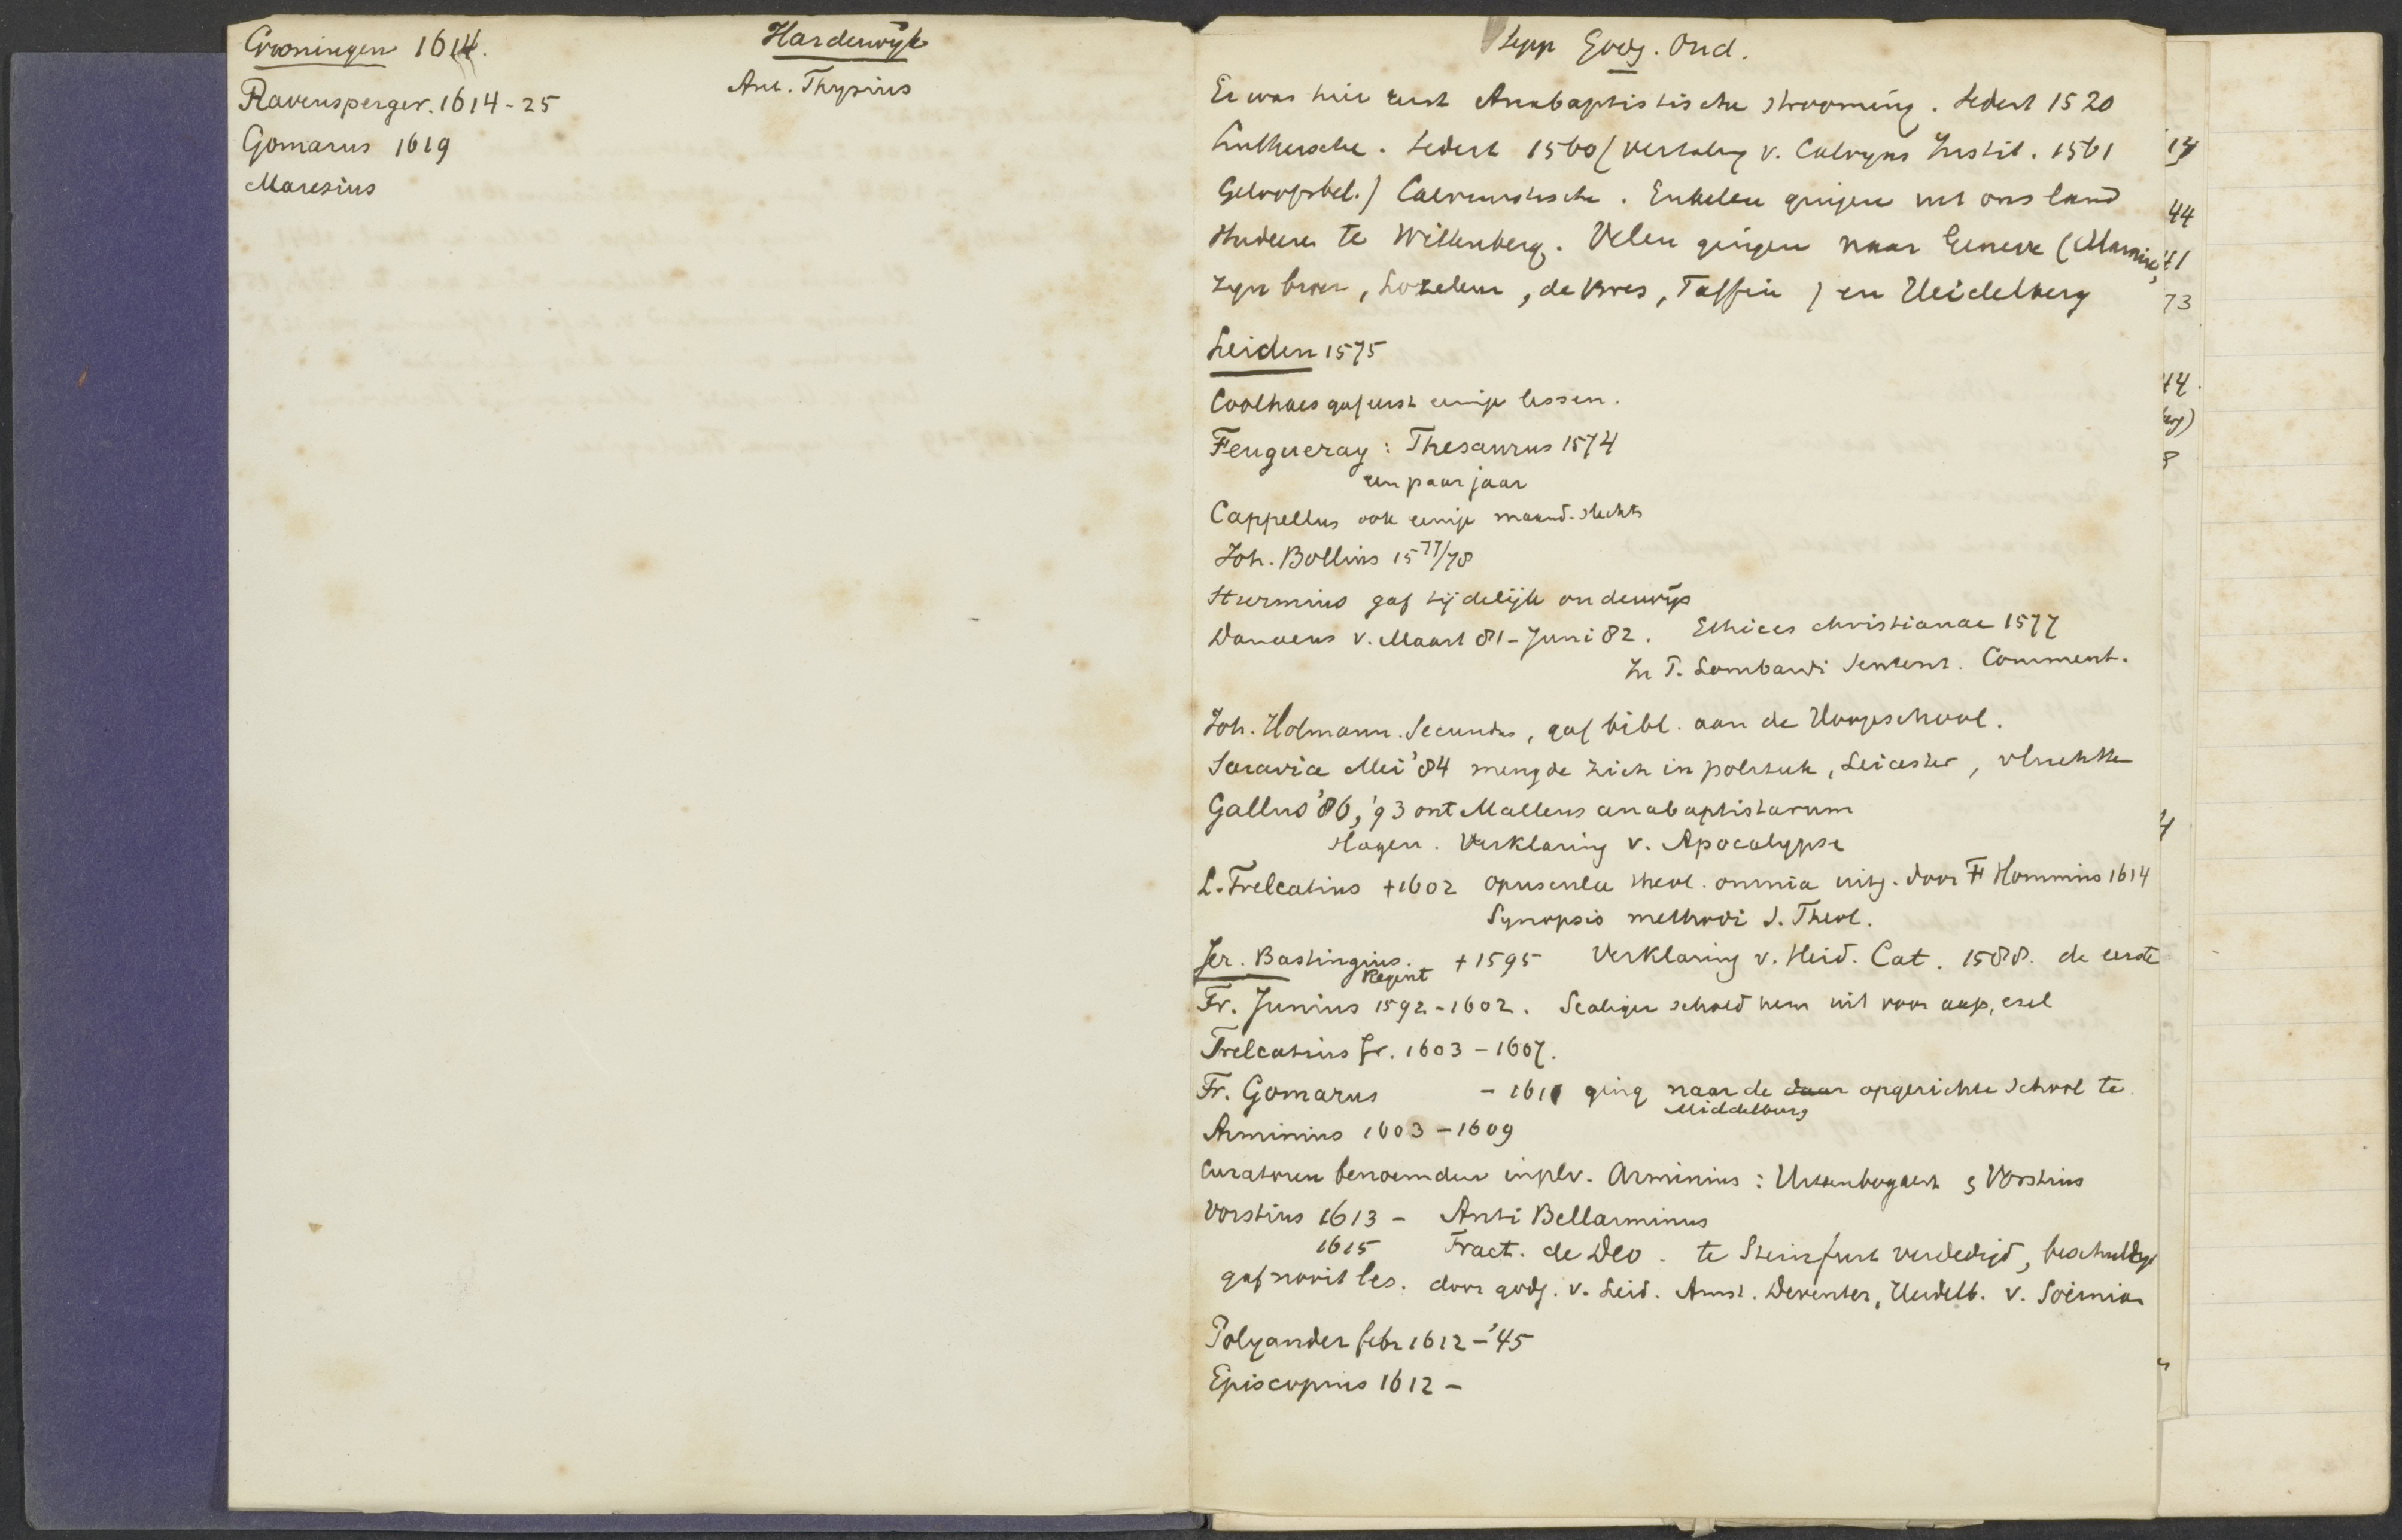 Groningen 1614.
Ravensperger. 1614-25
Gomarus 1619
Maresius
Harderwijk
Ant. Thysius
Sepp Godg. Ond.
Er was hier eerst Anabaptistische strooming. Sedert 1520
Luthersche. Sedert 1560 (vertaling v. Calvyns Instit. 1561
Geloofsbel.) Calvinistische. Enkelen gingen uit ons land
studeeren te Wittenberg. Velen gingen naar Geneve (Marnix,
zyn broer, Lozeleur, de Bres, Taffin) en Heidelberg
Leiden 1575
Coolhaes gaf eerst eenige lessen.
Feugueray: Thesaurus 1574
een paar jaar
Cappellus ook eenige maand. slechts
Joh. Bollius 1577/78
Sturmius gaf tijdelijk onderwijs
Danaeus v. Maart 81-Juni 82. Ethices christianae 1577
In P. Lombardi Sentent. Comment.
Joh. Holmann. Secundus, gaf bibl. aan de Hoogeschool.
Saravia Mei '84 mengde zich in politiek, Leicester, vluchtte
Gallus '86, '93 ont Malleus anabaptistarum
Hagen. Verklaring v. Apocalypse
L. Trelcatius +1602 opuscula theol. omnia uitg. door F Hommius 1614
Synopsis methodi S. Theol.
Jer. Bastingius. +1595 Verklaring v. Heid. Cat. 1588. de eerste
Regent
Fr. Junius 1592-1602. Scaliger schold hem uit voor aap, ezel
Trelcatius Jr. 1603-1607.
Fr. Gomarus - 1611 ging naar de daar opgerichte school te
Middelburg
Arminius 1603-1609
Curatoren benoemden inplv. Arminius: Uttenbogaert & Vorstius
Vorstius 1613 - Anti Bellarminus
1615 Tract. de Deo. te Steinfurt verdedigd, beschuldigd
gaf nooit les. door godg. v. Leid. Amst. Deventer, Heidelb. v. Socinian
Polyander febr 1612-'45
Episcopius 1612-
44
41
73
44.
berg)
8
4